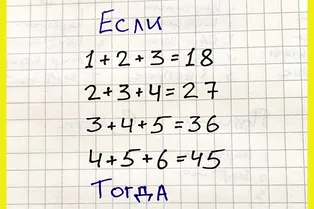 Если
1+2+3=18
2+3+4=27
3+4+5=36
4+5+6=45
Тогда